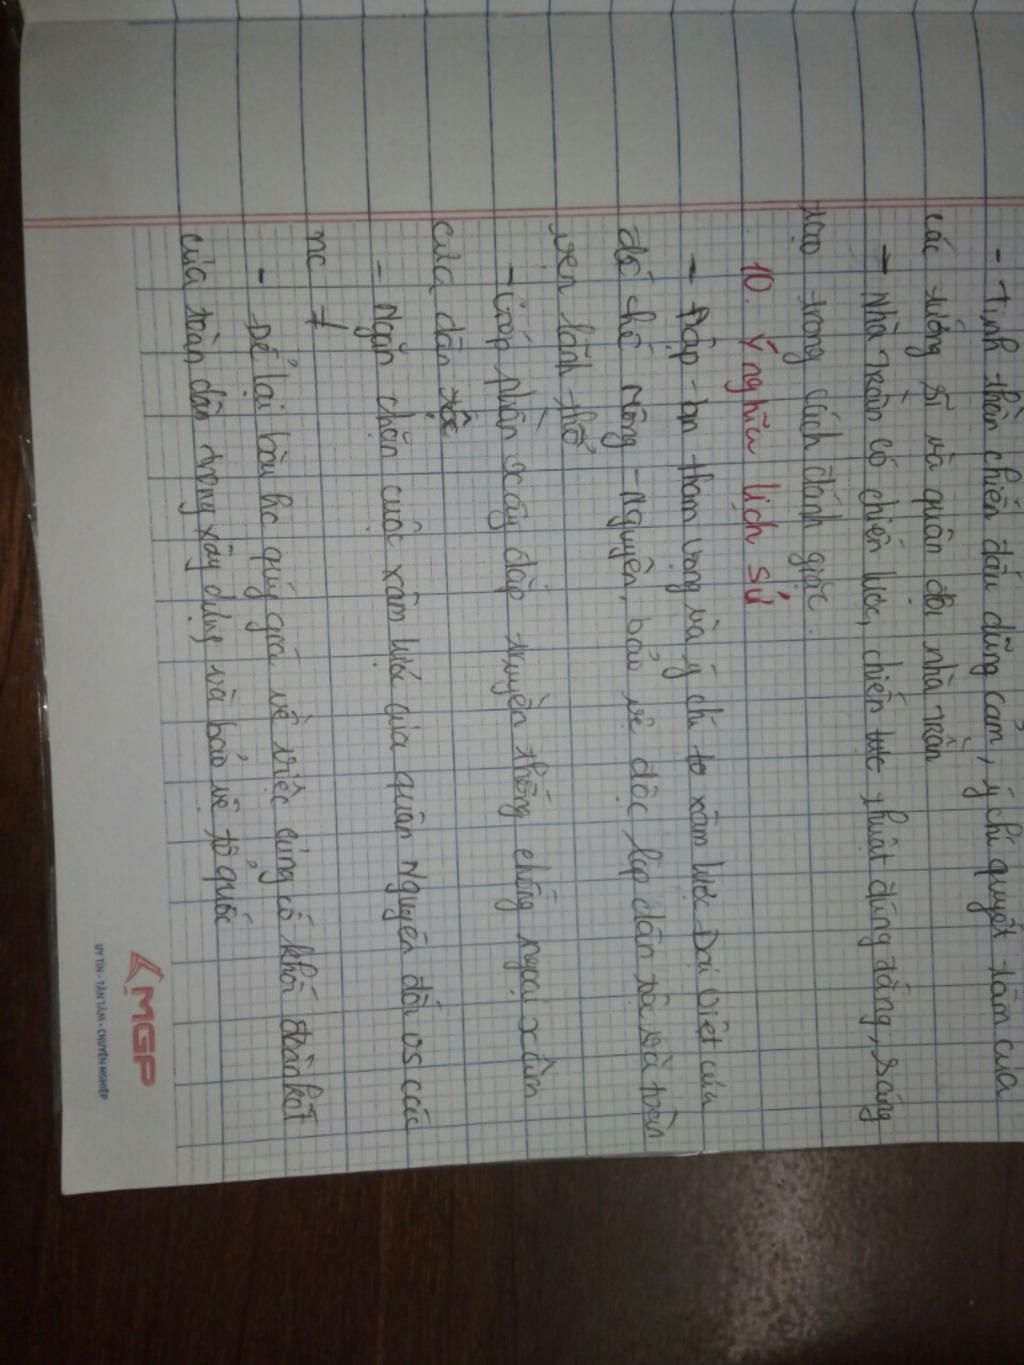 - Tinh thần chiến đấu dũng cảm, ý chí quyết tâm của
các tướng sĩ và quân đội nhà Trần
- Nhà Trần có chiến lược, chiến lược thuật đúng đắng, sáng
tạo trong cách đánh giặc.
10. Ý nghĩa lịch sử
- Đập tan tham vọng và ý chí xâm lược Đại Việt của
đế chế Mông - Nguyên, bảo vệ độc lập dân tộc và toàn
vẹn lãnh thổ
- Góp phần xây đắp truyền thống chống ngoại xâm
của dân tộc
- Ngăn chặn cuộc xâm lược của quân Nguyên đối vs các
nc ≠
- Để lại bài hc quý giá về việc củng cố khối đoàn kết
của toàn dân trong xây dựng và bảo vệ tổ quốc
MGP
UY TÍN - TẬN TÂM - CHUYÊN NGHIỆP